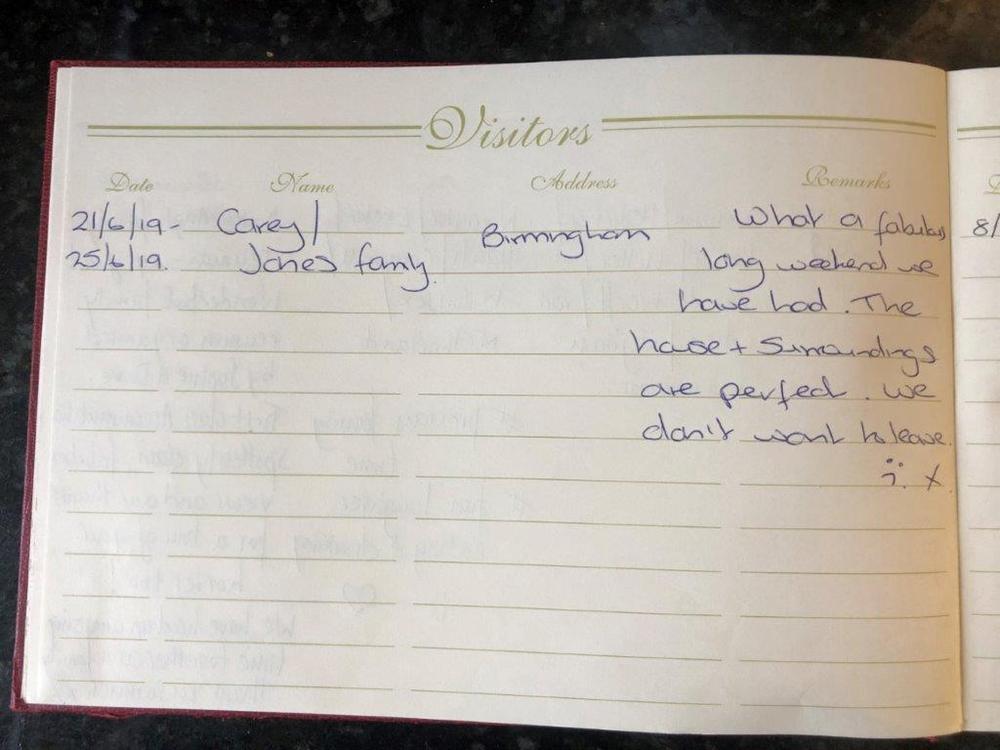 Visitors
Date Name Address Remarks
21/6/19 - Carey / Birmingham What a fabulous 8/
25/6/19. Jones family. long weekend we
have had. The
house + surroundings
are perfect. we
don't want to leave.
x